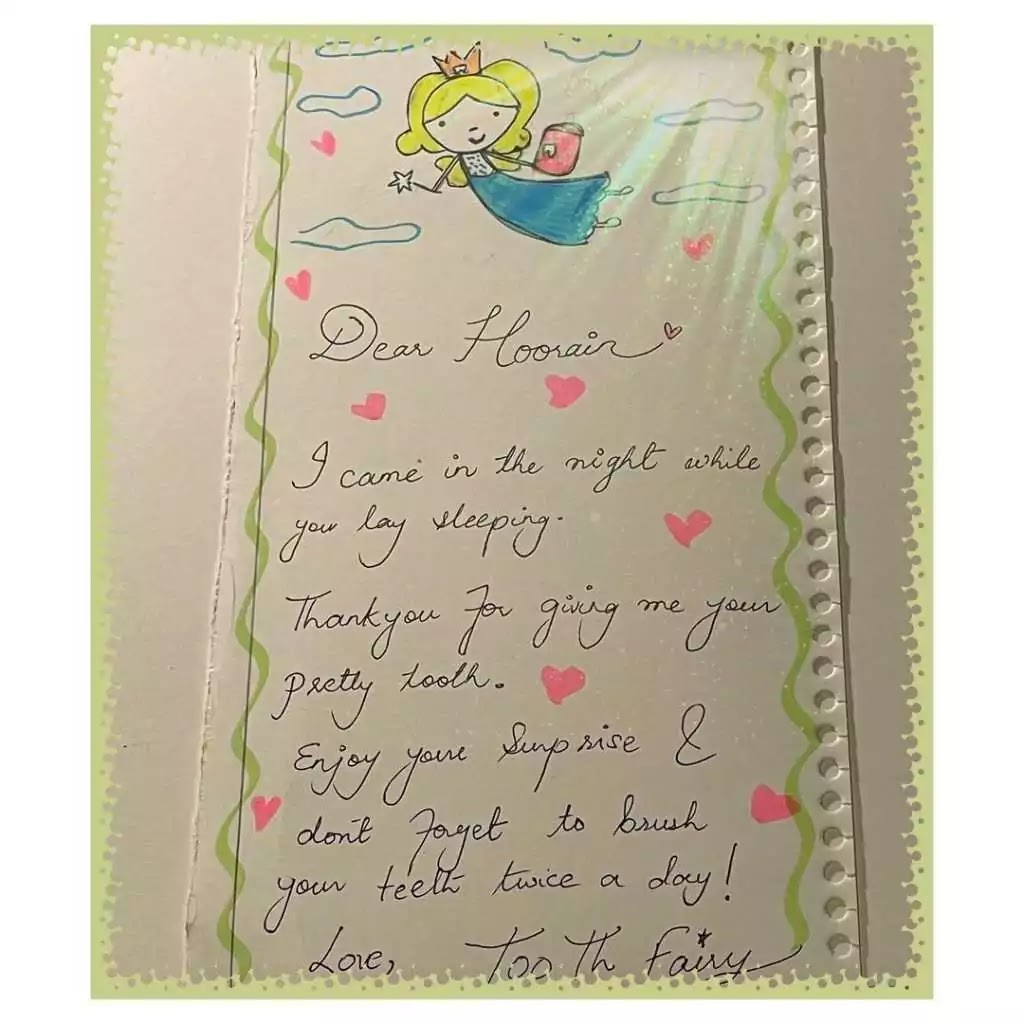 Dear Hoorain
I came in the night while
you lay sleeping.
Thankyou For giving me your
pretty tooth.
Enjoy your Surprise &
don't Forget to brush
your teeth twice a day!
Love, Tooth Fairy